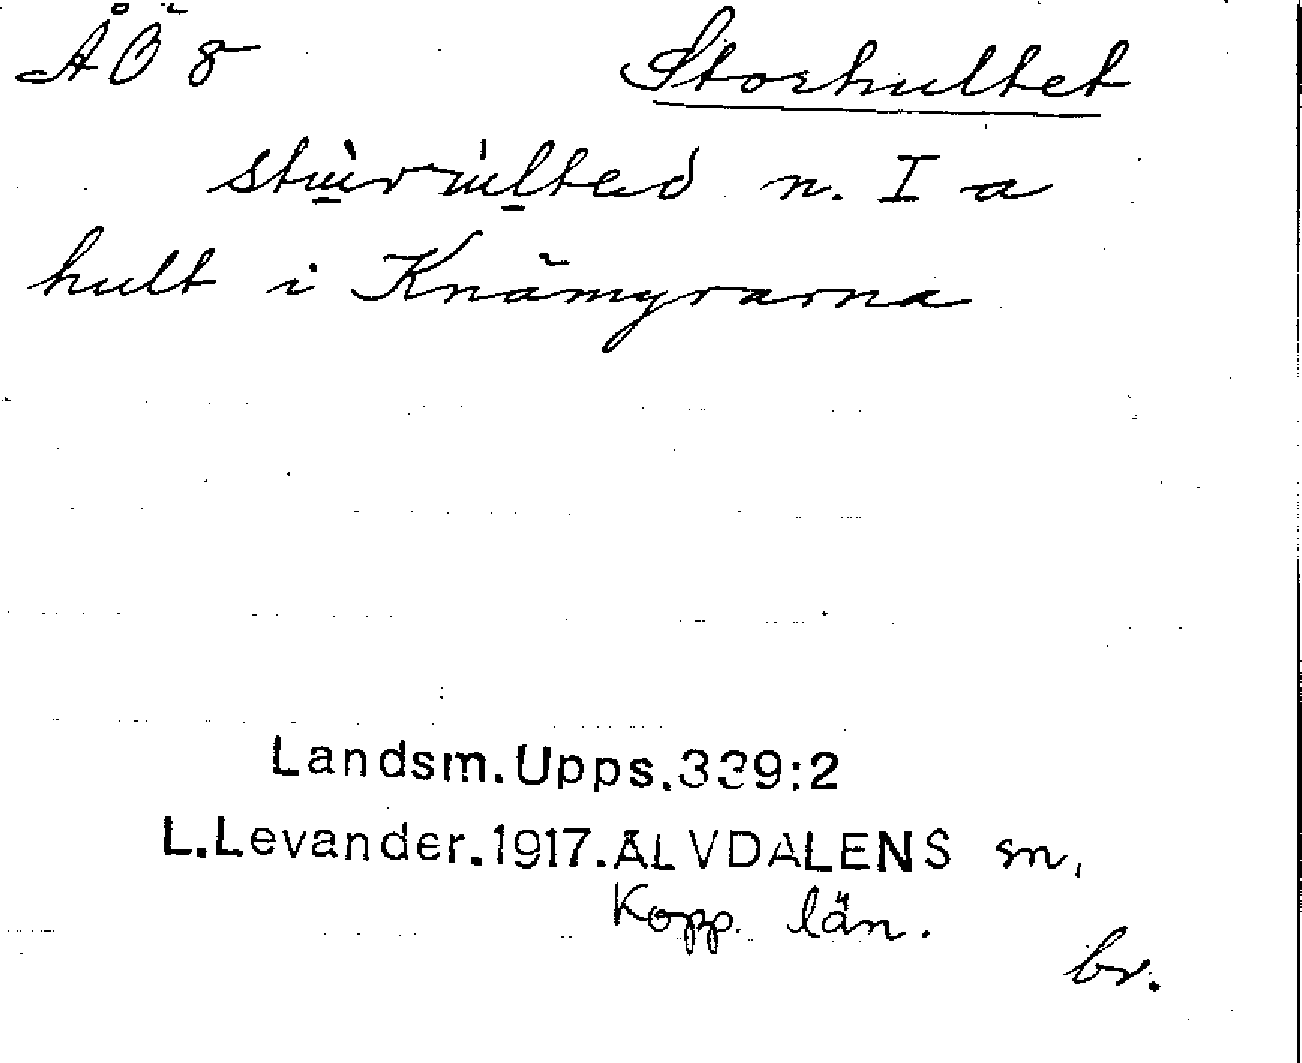 ÅÖ 8 Storhultet
stùrùlted n. I a
hult i Knämyrarna
Landsm. Upps. 339:2
L. Levander. 1917. ÄLVDALENS sn,
Kopp. län.
br.